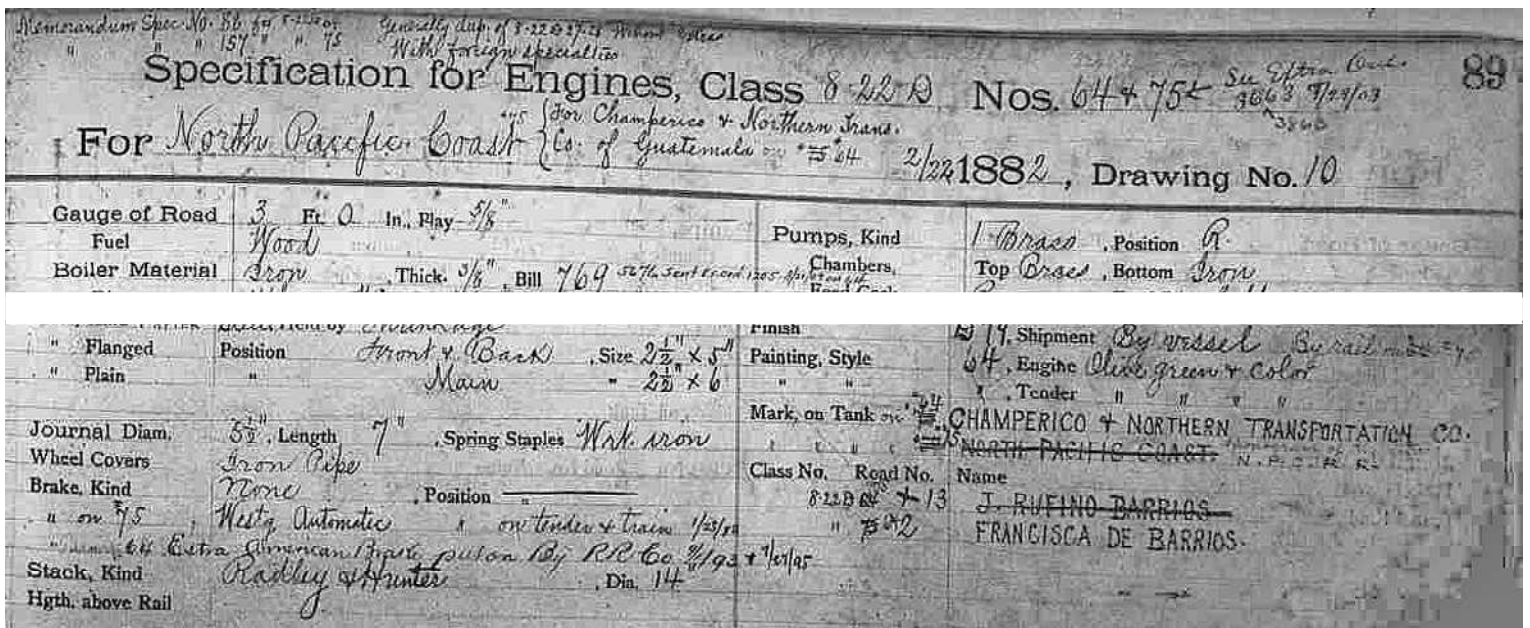 Memorandum Spec. No. 86 by
" " " 157 " " 75
Generally dup. of 8-22 D 27.28 Without extras
With foreign specialties
89
Specification for Engines, Class 8-22 D Nos. 64 & 75
See Extra Order
3663
3863
For North Pacific Coast 75 { For Champerico & Northern Trans.
Co. of Guatemala on 64 2/22 1882, Drawing No. 10
Gauge of Road 3 Ft. 0 In., Play 5/8"
Fuel Wood
Boiler Material Iron, Thick. 3/8", Bill 769
Pumps, Kind 1 Brass, Position R.
Chambers, Top Brass, Bottom Iron
" Flanged Position Front & Back, Size 2½" × 5"
" Plain " Main " 2½" × 6"
Journal Diam. 5½", Length 7", Spring Staples Wrt. iron
Wheel Covers Iron Pipe
Brake, Kind None, Position "
" on 75, Westg Automatic " on tender & train
64 Extra American Brake put on By RR Co.
Stack, Kind Radley & Hunter, Dia. 14"
Hgth. above Rail
Finish
19, Shipment By vessel By rail on
Painting, Style 64, Engine Olive green & color
" " ", Tender " " " "
Mark, on Tank on 64, CHAMPERICO & NORTHERN TRANSPORTATION CO.
" " " 75 NORTH PACIFIC COAST. N.P.C.R.R.
Class No. Road No. Name
8-22 D 13 J. RUFINO BARRIOS
" 2 FRANCISCA DE BARRIOS.